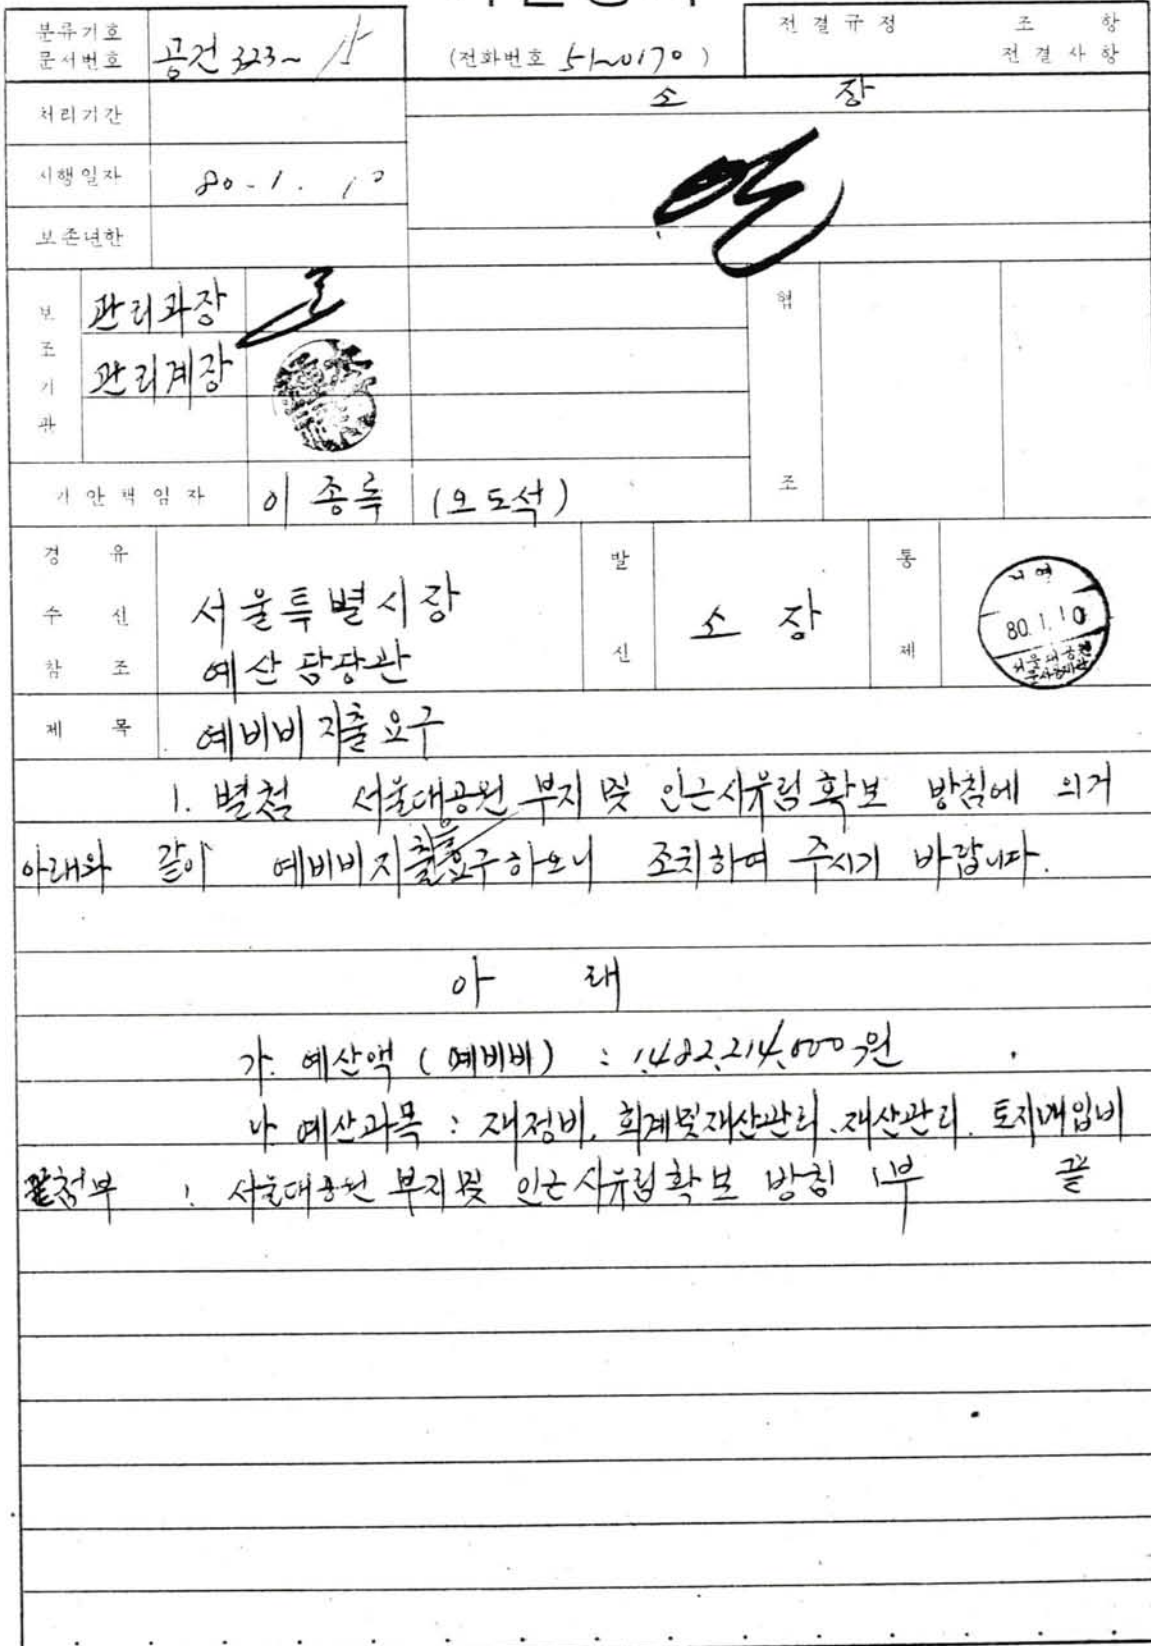 분류기호 문서번호 공건 323~
(전화번호 51~0170)
전결규정 조 항
전결사항
처리기간
소 장
시행일자 80.1.10
보존년한
보조기관 관리과장
관리계장
협조
기안책임자 이종록 (오도석)
경유
수신 서울특별시장
참조 예산담당관
발신 소장
통제
80.1.10
제목 예비비 지출요구
1. 별첨 서울대공원 부지 및 인근사유림 확보 방침에 의거
아래와 같이 예비비지출을 요구하오니 조치하여 주시기 바랍니다.
아 래
가. 예산액 (예비비) : 1,482,214,000원
나. 예산과목 : 재정비. 회계및재산관리. 재산관리. 토지매입비
첨부 : 서울대공원 부지 및 인근사유림확보 방침 1부 끝